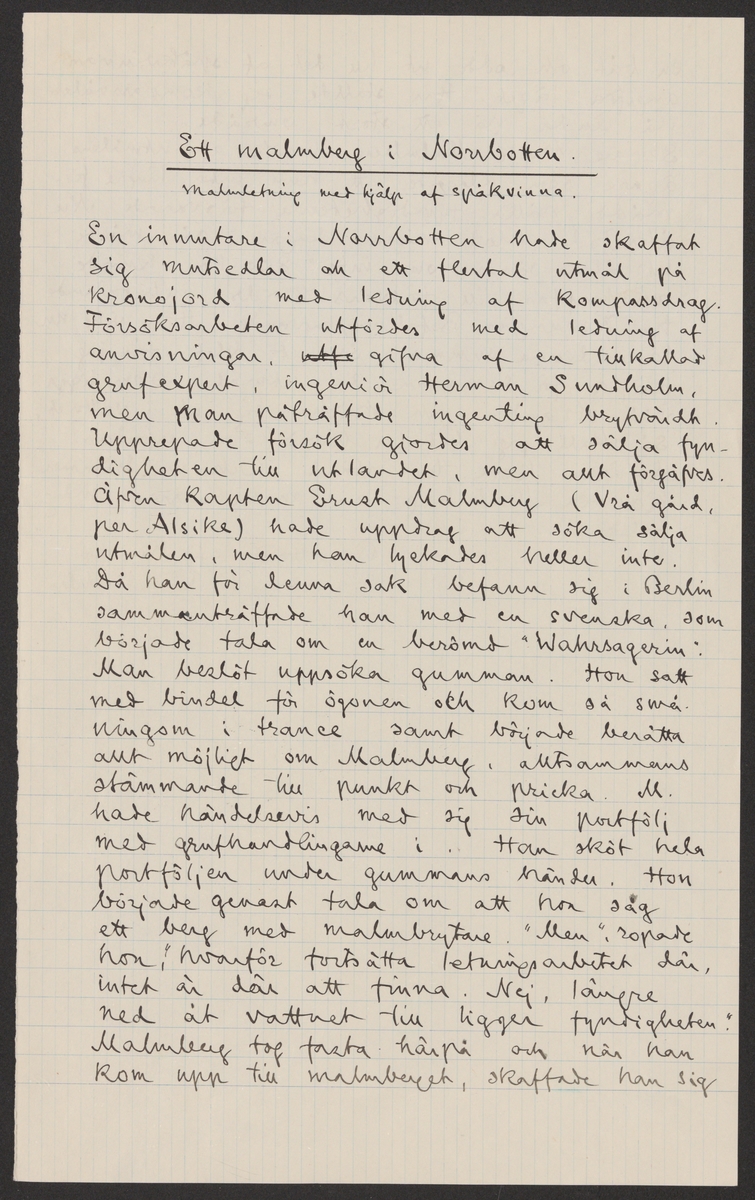 Ett malmberg i Norrbotten.
Malmletning med hjälp af spåkvinna.
En inmutare i Norrbotten hade skaffat
sig mutsedlar och ett flertal utmål på
kronojord med ledning af kompassdrag.
Försöksarbeten utfördes med ledning af
anvisningar, utfe gifna af en tillkallad
grufexpert, ingeniör Herman Sundholm,
men man påträffade ingenting brytvärdt.
Upprepade försök gjordes att sälja fyn-
digheten till utlandet, men allt förgäfves.
Äfven kapten Ernst Malmberg (Vrå gård,
per Alsike) hade uppdrag att söka sälja
utmålen, men han lyckades heller inte.
Då han för denna sak befann sig i Berlin
sammanträffade han med en svenska, som
började tala om en berömd "Wahrsagerin".
Man beslöt uppsöka gumman. Hon satt
med bindel för ögonen och kom så små-
ningom i trance samt började berätta
allt möjligt om Malmberg, alltsammans
stämmande till punkt och pricka. M.
hade händelsevis med sig sin portfölj
med grufhandlingarne i .. Han sköt hela
portföljen under gummans händer. Hon
började genast tala om att hon såg
ett berg med malmbrytare. "Men", ropade
hon, "hvarför fortsätta letningsarbetet där,
intet är där att finna. Nej, längre
ned åt vattnet till ligger fyndigheten".
Malmberg tog fasta härpå och när han
kom upp till malmberget, skaffade han sig